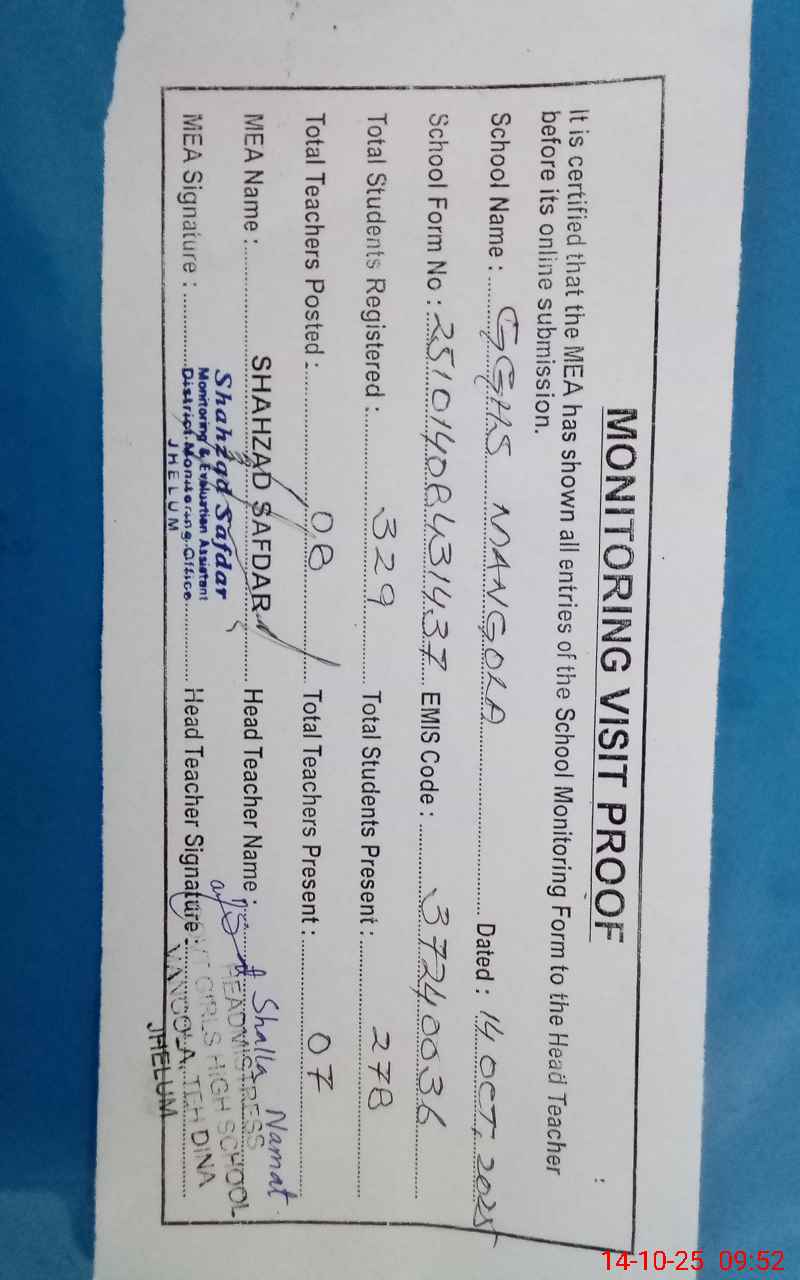 MONITORING VISIT PROOF
It is certified that the MEA has shown all entries of the School Monitoring Form to the Head Teacher
before its online submission.
School Name : GGHS MANGOLA Dated : 14 OCT, 2025
School Form No : EMIS Code : 37240036
Total Students Registered : 329 Total Students Present : 278
Total Teachers Posted : 08 Total Teachers Present : 07
MEA Name : SHAHZAD SAFDAR Head Teacher Name : Shalla Namat
MEA Signature : Head Teacher Signature :
Shahzad Safdar
Monitoring & Evaluation Assistant
District Monitoring Office
JHELUM
HEADMISTRESS
GIRLS HIGH SCHOOL
TEH DINA
JHELUM
14-10-25 09:52